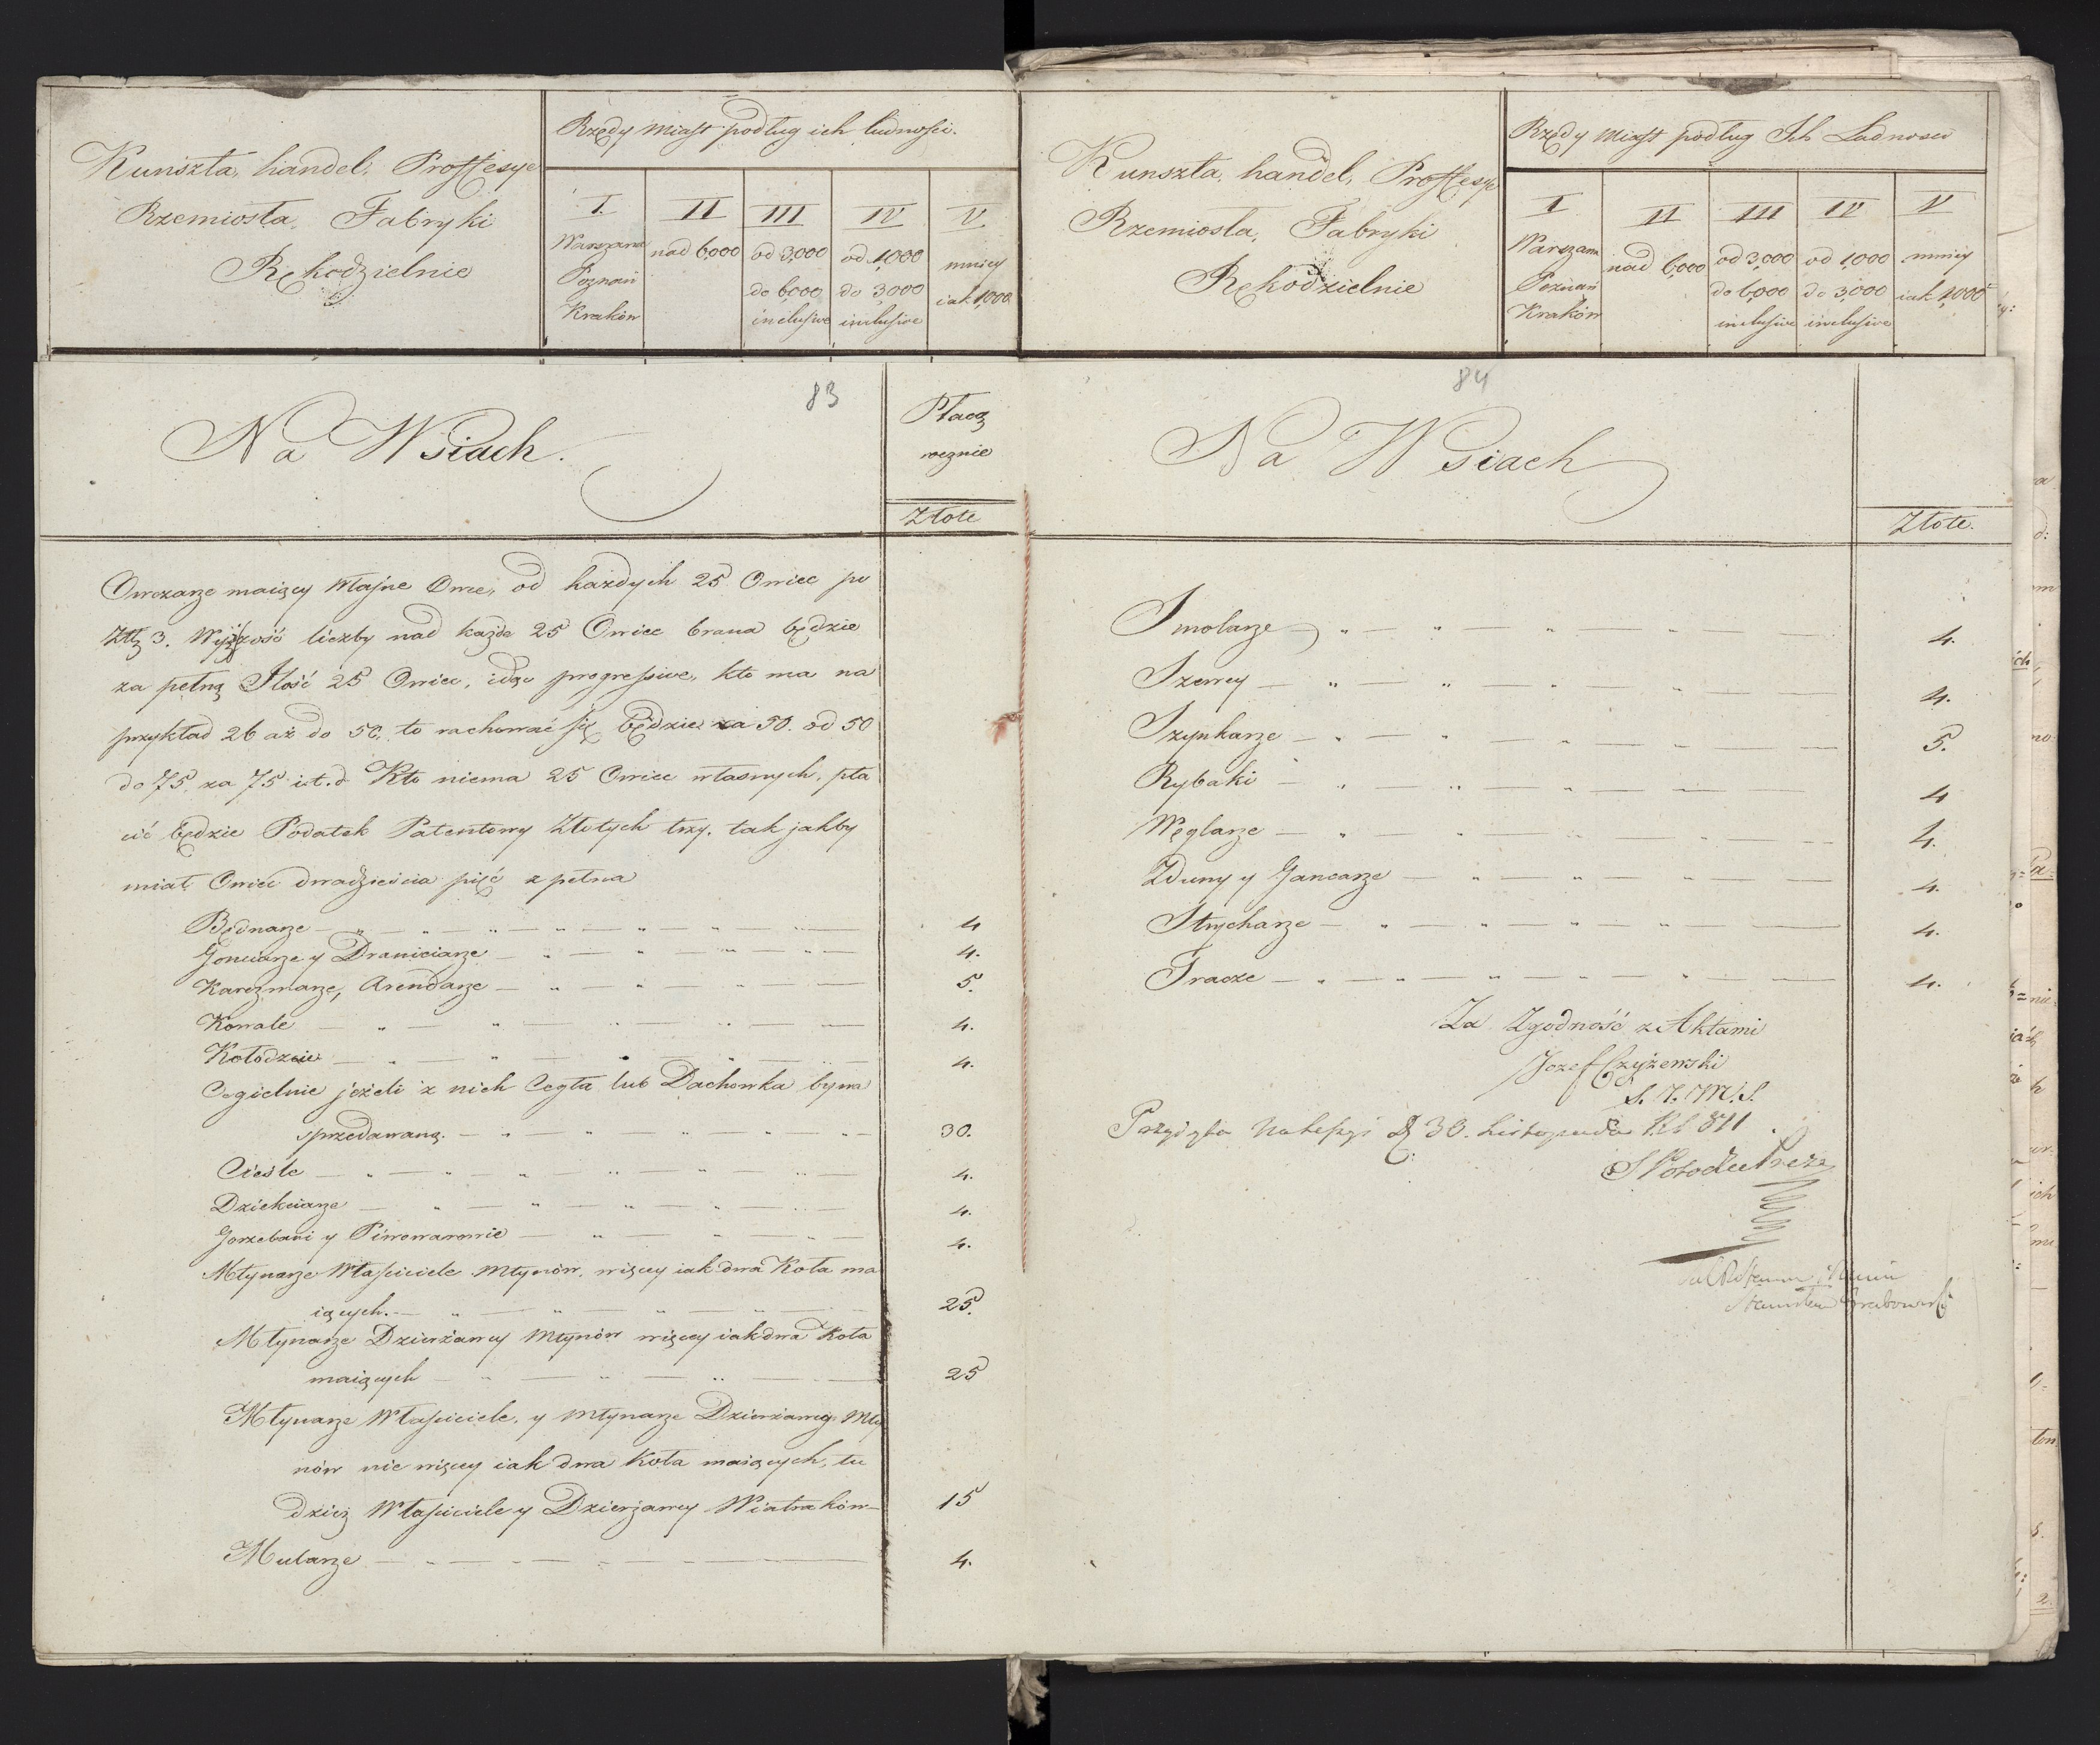 Kunszta, handel, Proffesye
Rzemiosła, Fabryki
Rękodzielnie
Rzędy Miast podług ich ludnosci.
I.
Warszawa
Poznań
Kraków
II
nad 6,000
III
od 3,000
do 6,000
inclusive
IV
od 1,000
do 3,000
inclusive
V
mnieÿ
iak 1,000
83
Na Wsiach.
Płacą
rocznie
Złote
Owczarze maiący własne Owce, od każdych 25 Owiec po
Złłz 3. Wyższość liczby nad każde 25 Owiec brana będzie
za pełną Jlość 25 Owiec, idąc progressive, kto ma na
przykład 26 aż do 50, to rachować się będzie za 50. od 50
do 75. za 75 i.t.d Kto niema 25 Owiec własnych, pła
cić będzie Podatek Patentowy Złotych trzy, tak jakby
miał Owiec dwadzieścia pięć z pełna
Bednarze 4
Gonciarze y Draniciarze 4.
Karczmarze, Arendarze 5.
Kowale 4.
Kołodzieie 4.
Cegielnie jeżeli z nich Cegła lub Dachowka bywa
sprzedawaną. 30.
Cieśle 4.
Dziekciarze 4.
Gorzelani y Piwowarowie 4.
Młynarze Właściciele Młynów, więcy iak dwa Koła ma
iących. 25.
Młynarze Dzierżawcy Młynów więcy iak dwa Koła
maiących 25
Młynarze Właściciele, y Młynarze Dzierżawcy Mły
nów nie więcy iak dwa Koła maiących, tu
dzież Właściciele y Dzierżawcy Wiatraków 15
Mularze 4.
Kunszta, handel, Proffesye
Rzemiosła, Fabryki
Rękodzielnie
Rzędy Miast podług Ich Ludnosci
I
Warszawa
Poznań
Kraków
II
nad 6,000
III
od 3,000
do 6,000
inclusive
IV
od 1,000
do 3,000
inclusive
V
mnieÿ
iak 1,000
84
Na Wsiach
Złote.
Smolarze 4.
Szewcy 4.
Szynkarze 5.
Rybaki 4
Węglarze 4.
Zduny y Garncarze 4.
Strycharze 4.
Tracze 4.
Za Zgodność z Aktami
Jozef Czyżewski
Przyięta na Sessyi D 30. Listopada Rb 811.
Stanisław Grabowski